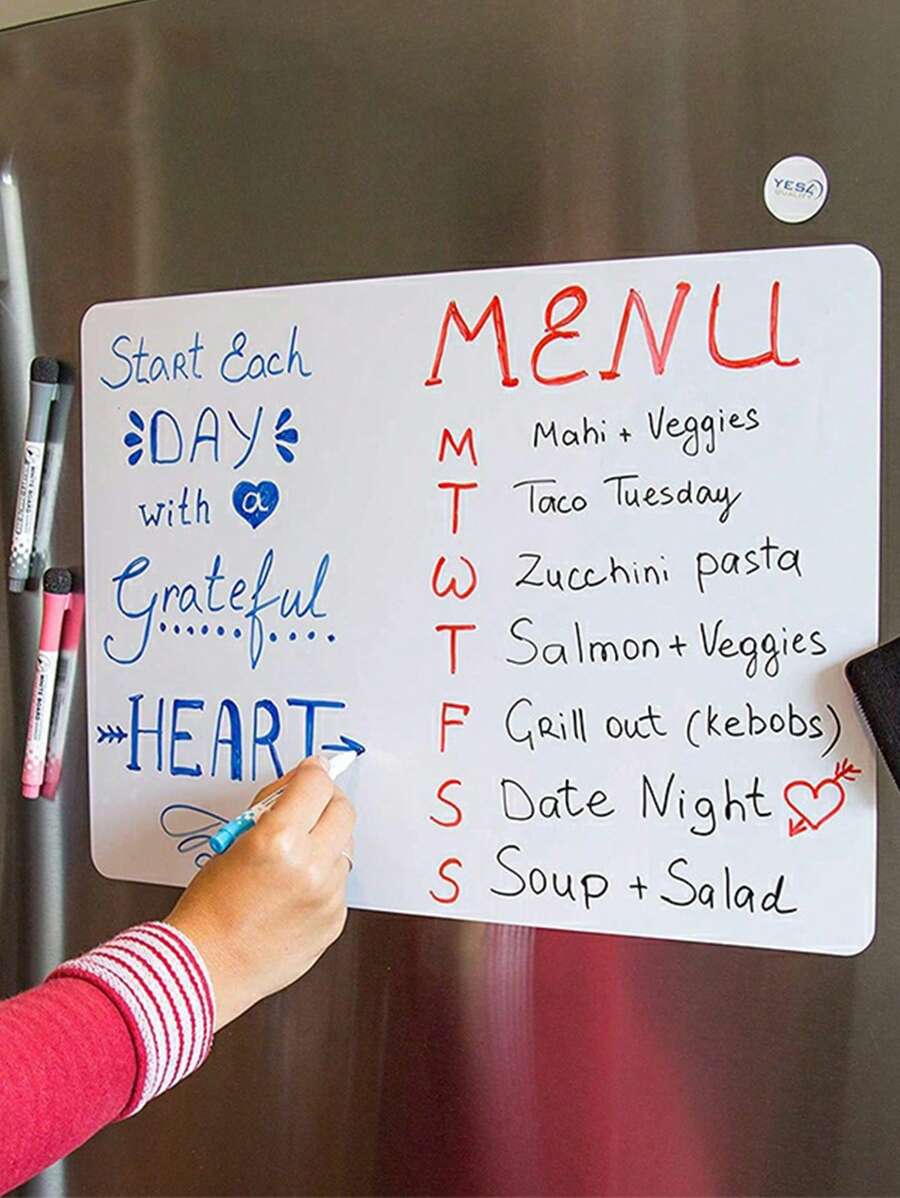 YES4
QUALITY
Start Each
DAY
with a
Grateful
HEART
MENU
M Mahi + Veggies
T Taco Tuesday
W Zucchini pasta
T Salmon + Veggies
F Grill out (kebobs)
S Date Night
S Soup + Salad
WHITE BOARD
WHITE BOARD